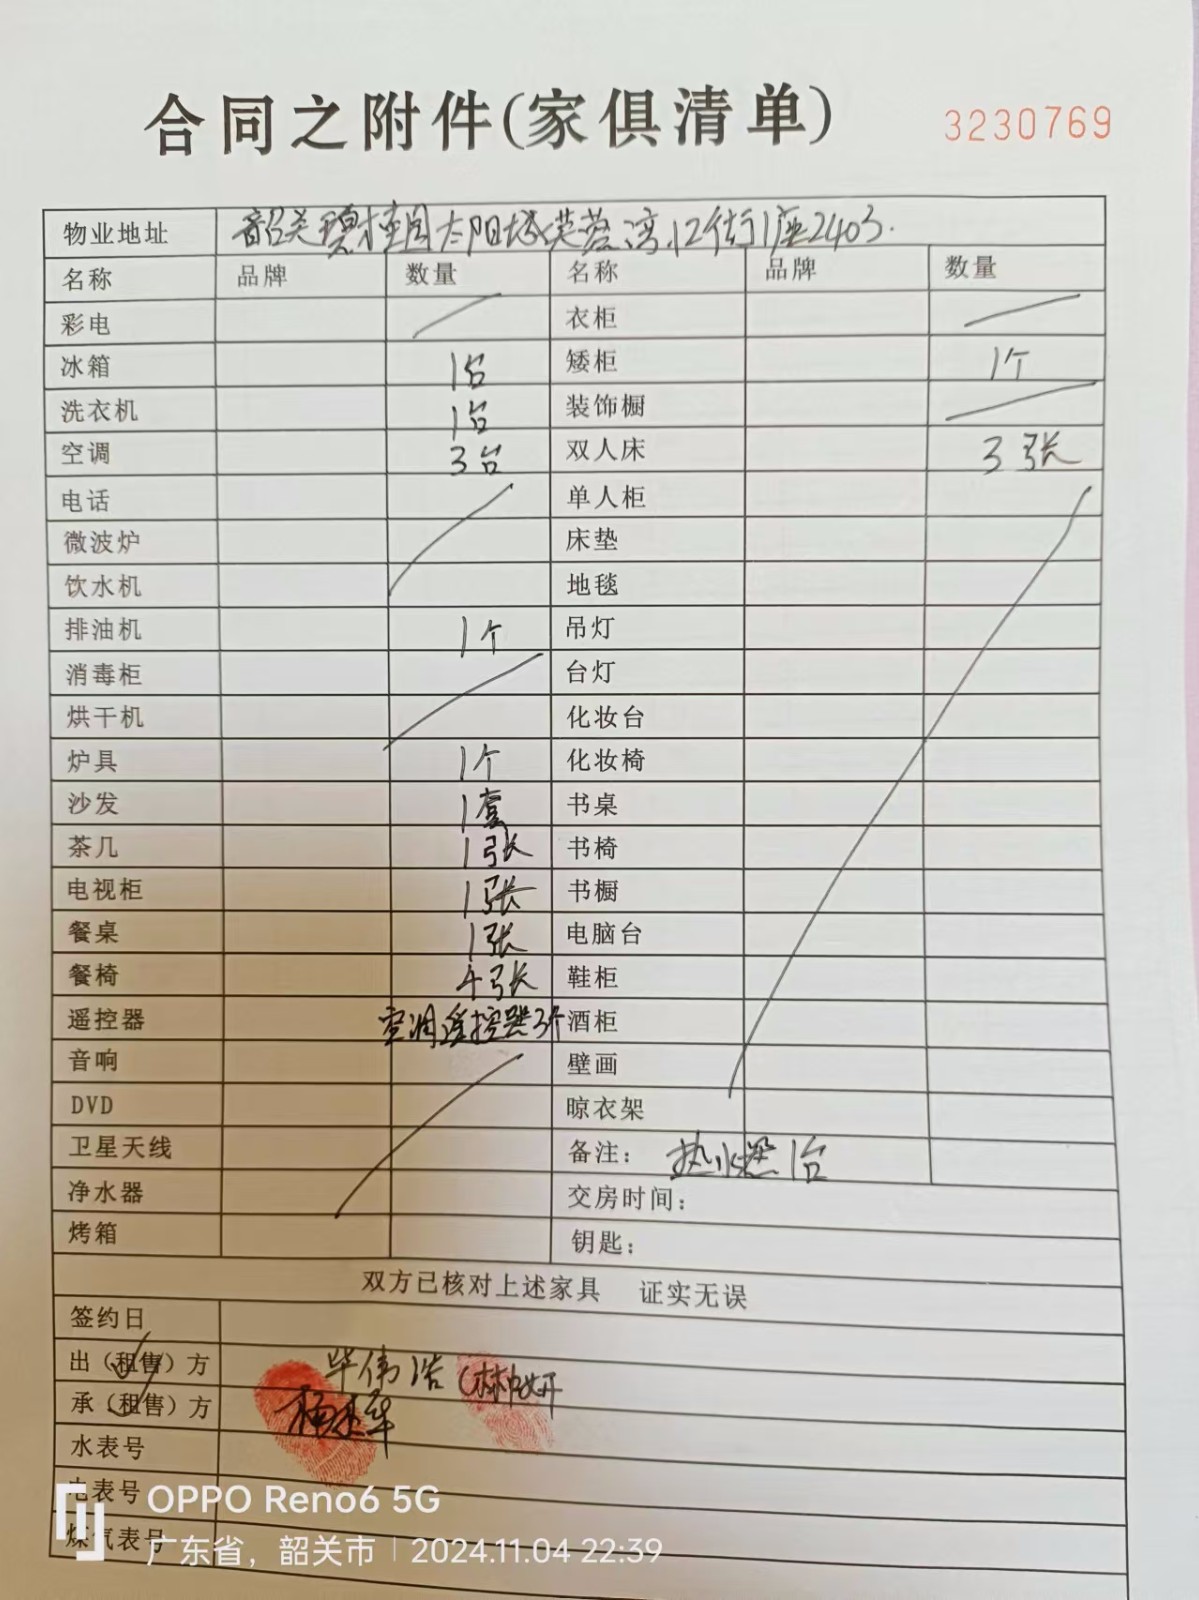 合同之附件(家俱清单)
3230769
物业地址 韶关碧桂园太阳城芙蓉湾12街1座2403.
名称 品牌 数量 名称 品牌 数量
彩电 衣柜
冰箱 1台 矮柜 1个
洗衣机 1台 装饰橱
空调 3台 双人床 3张
电话 单人柜
微波炉 床垫
饮水机 地毯
排油机 1个 吊灯
消毒柜 台灯
烘干机 化妆台
炉具 1个 化妆椅
沙发 1套 书桌
茶几 1张 书椅
电视柜 1张 书橱
餐桌 1张 电脑台
餐椅 4张 鞋柜
遥控器 空调遥控器3个 酒柜
音响 壁画
DVD 晾衣架
卫星天线 备注: 热水器1台
净水器 交房时间:
烤箱 钥匙:
双方已核对上述家具 证实无误
签约日
出(租售)方 毕伟浩
承(租售)方
水表号
电表号
煤气表号
OPPO Reno6 5G
广东省，韶关市 | 2024.11.04 22:39